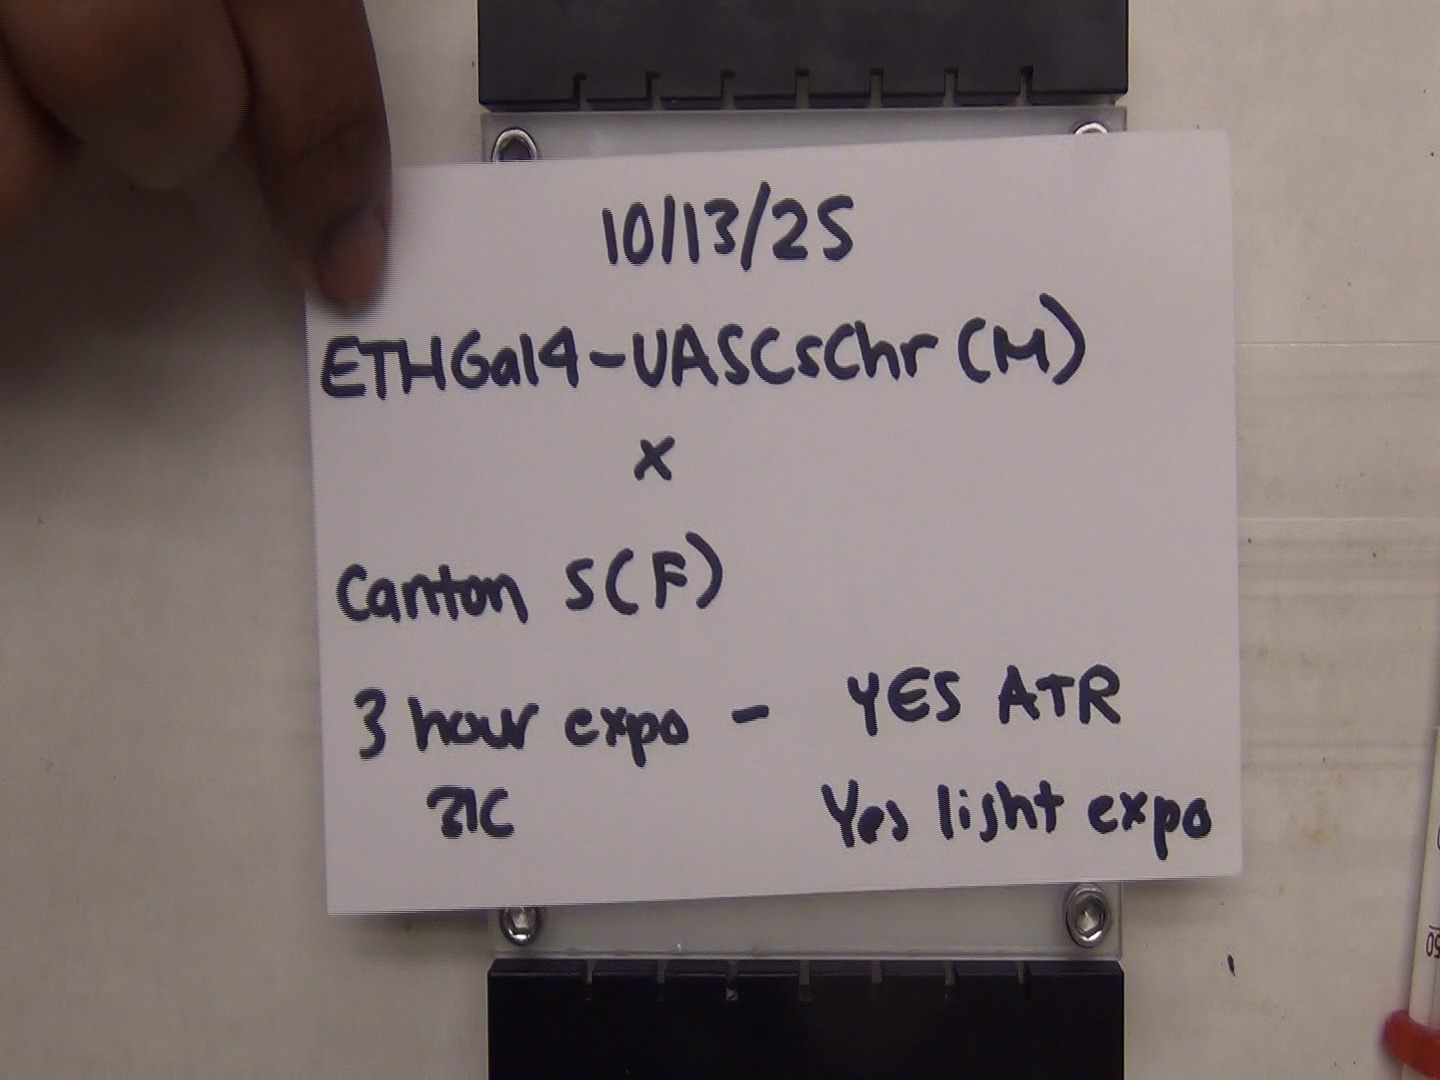 10/13/25
ETHGal4-UASCsChr (M)
x
Canton S (F)
3 hour expo - YES ATR
21C Yes light expo
50